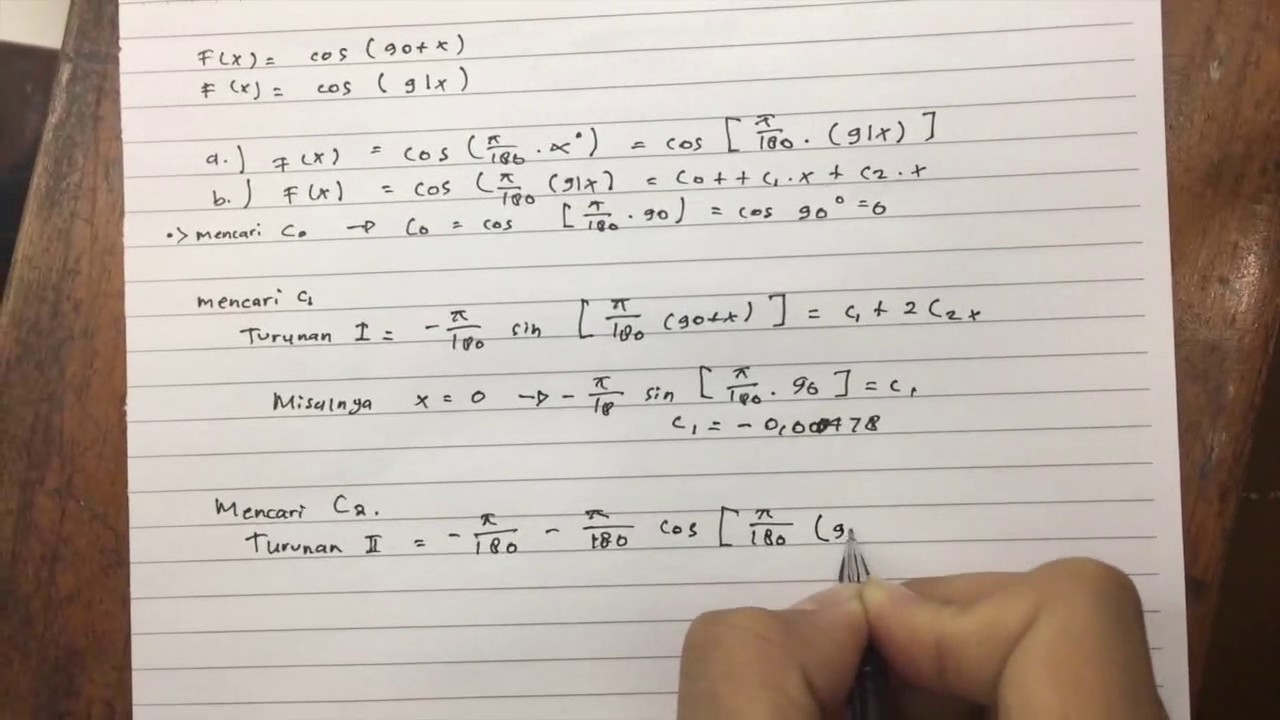 F(x) = cos (90+x)
F(x) = cos (91x)
a.) F(x) = cos (π/180 . x°) = cos [π/180 . (91x)]
b.) F(x) = cos (π/180 (91x) = C0 + + C1.x + C2.x
•> mencari C0 → C0 = cos [π/180 . 90) = cos 90° = 0
mencari C1
Turunan I = -π/180 sin [π/180 (90+x)] = C1 + 2C2x
Misalnya x = 0 → -π/18 sin [π/180 . 90] = C1
C1 = -0,000478
Mencari C2.
Turunan II = -π/180 - π/180 cos [π/180 (9